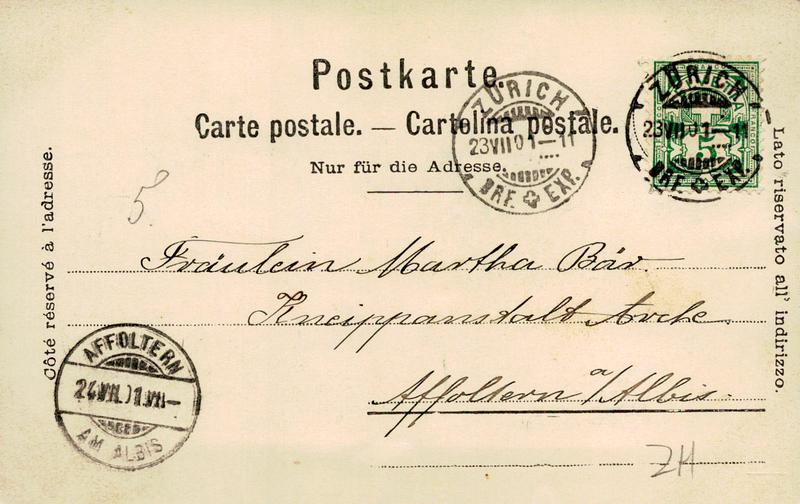 Postkarte.
Carte postale. — Cartolina postale.
Nur für die Adresse.
Côté réservé à l'adresse.
Lato riservato all' indirizzo.
ZÜRICH
23.VII.01.–11
BRF. EXP.
ZÜRICH
23.VII.01.–11
BRF. EXP.
5
5.
Fräulein Martha Bär.
Kneippanstalt Arche
Affoltern a/Albis.
AFFOLTERN
24.VII.01.VII–
AM ALBIS
ZH